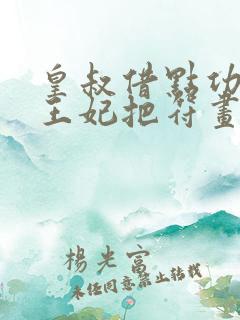 皇叔借點功
王妃把符畫
楊光富
未經同意禁止轉載